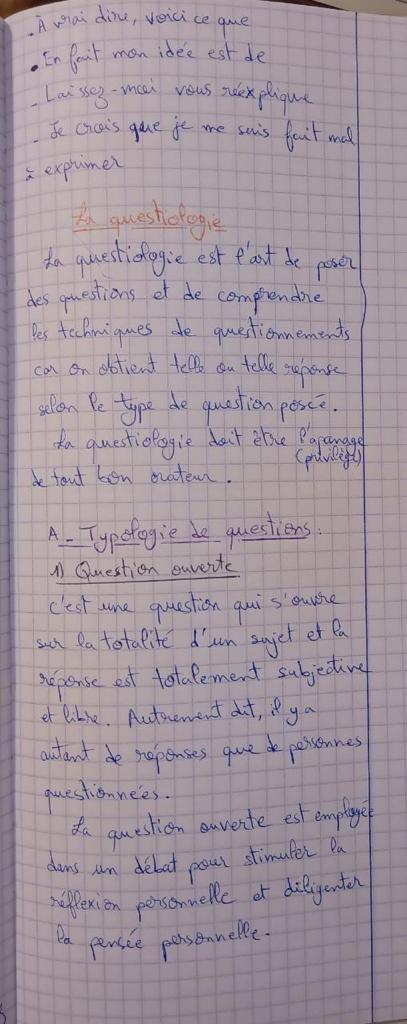 . À vrai dire, voici ce que
• En fait mon idée est de
- Laissez-moi vous réexplique
- Je crois que je me suis fait mal
à exprimer
La questiologie
La questiologie est l'art de poser
des questions et de comprendre
les techniques de questionnements
car on obtient telle ou telle réponse
selon le type de question posée.
La questiologie doit être l'apanage
(privilège)
de tout bon orateur.
A - Typologie de questions :
1) Question ouverte
C'est une question qui s'ouvre
sur la totalité d'un sujet et la
réponse est totalement subjective
et libre. Autrement dit, il y a
autant de réponses que de personnes
questionnées.
La question ouverte est employée
dans un débat pour stimuler la
réflexion personnelle et diligenter
la pensée personnelle.